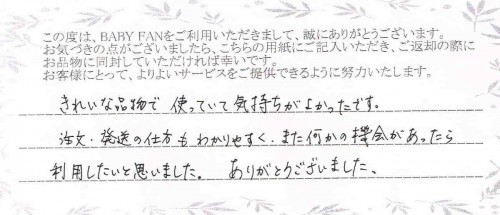 この度は、BABY FANをご利用いただきまして、誠にありがとうございます。
お気づきの点がございましたら、こちらの用紙にご記入いただき、ご返却の際に
お品物に同封していただければ幸いです。
お客様にとって、よりよいサービスをご提供できるように努力いたします。
きれいな品物で 使っていて気持ちがよかったです。
注文・発送の仕方もわかりやすく、また何かの機会があったら
利用したいと思いました。 ありがとうございました、